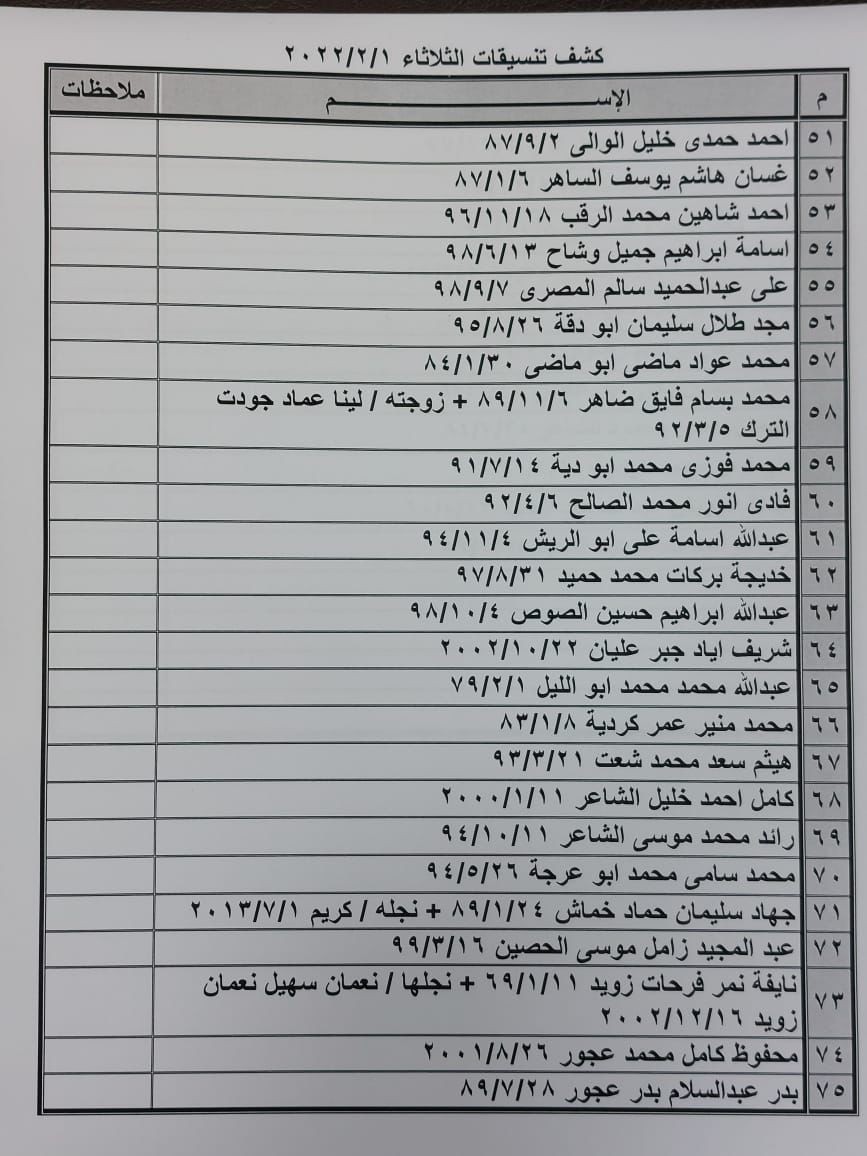 كشف تنسيقات الثلاثاء ٢٠٢٢/٢/١
م الإســـــــــــــــــــــم ملاحظات
٥١ احمد حمدى خليل الوالى ٨٧/٩/٢
٥٢ غسان هاشم يوسف الساهر ٨٧/١/٦
٥٣ احمد شاهين محمد الرقب ٩٦/١١/١٨
٥٤ اسامة ابراهيم جميل وشاح ٩٨/٦/١٣
٥٥ على عبدالحميد سالم المصرى ٩٨/٩/٧
٥٦ مجد طلال سليمان ابو دقة ٩٥/٨/٢٦
٥٧ محمد عواد ماضى ابو ماضى ٨٤/١/٣٠
٥٨ محمد بسام فايق ضاهر ٨٩/١١/٦ + زوجته / لينا عماد جودت
الترك ٩٢/٣/٥
٥٩ محمد فوزى محمد ابو دية ٩١/٧/١٤
٦٠ فادى انور محمد الصالح ٩٢/٤/٦
٦١ عبدالله اسامة على ابو الريش ٩٤/١١/٤
٦٢ خديجة بركات محمد حميد ٩٧/٨/٣١
٦٣ عبدالله ابراهيم حسين الصوص ٩٨/١٠/٤
٦٤ شريف اياد جبر عليان ٢٠٠٢/١٠/٢٢
٦٥ عبدالله محمد محمد ابو الليل ٧٩/٢/١
٦٦ محمد منير عمر كردية ٨٣/١/٨
٦٧ هيثم سعد محمد شعت ٩٣/٣/٢١
٦٨ كامل احمد خليل الشاعر ٢٠٠٠/١/١١
٦٩ رائد محمد موسى الشاعر ٩٤/١٠/١١
٧٠ محمد سامى محمد ابو عرجة ٩٤/٥/٢٦
٧١ جهاد سليمان حماد خماش ٨٩/١/٢٤ + نجله / كريم ٢٠١٣/٧/١
٧٢ عبد المجيد زامل موسى الحصين ٩٩/٣/١٦
٧٣ نايفة نمر فرحات زويد ٦٩/١/١١ + نجلها / نعمان سهيل نعمان
زويد ٢٠٠٢/١٢/١٦
٧٤ محفوظ كامل محمد عجور ٢٠٠١/٨/٢٦
٧٥ بدر عبدالسلام بدر عجور ٨٩/٧/٢٨